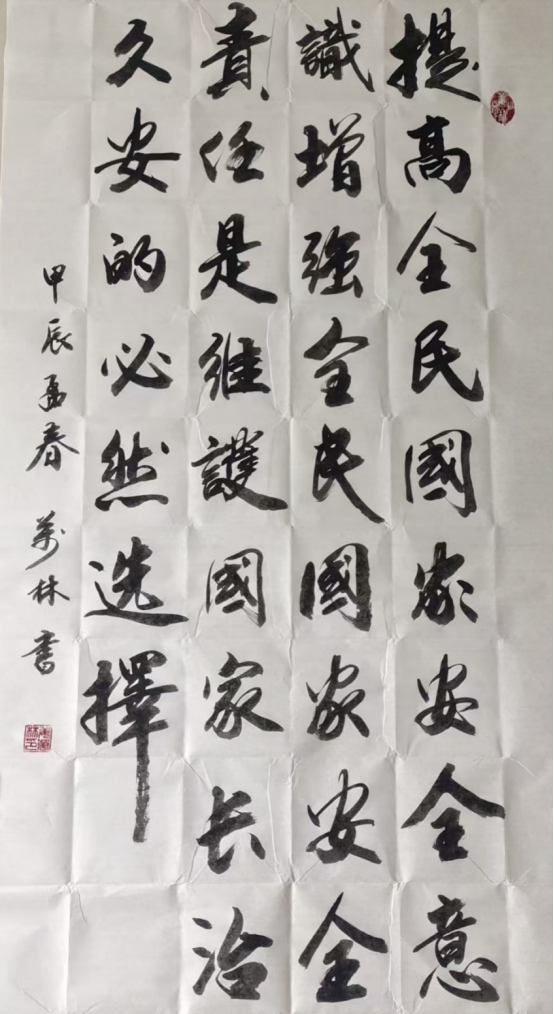 提高全民國家安全意
識增強全民國家安全
責任是維護國家长治
久安的必然选擇
甲辰孟春 萬林書